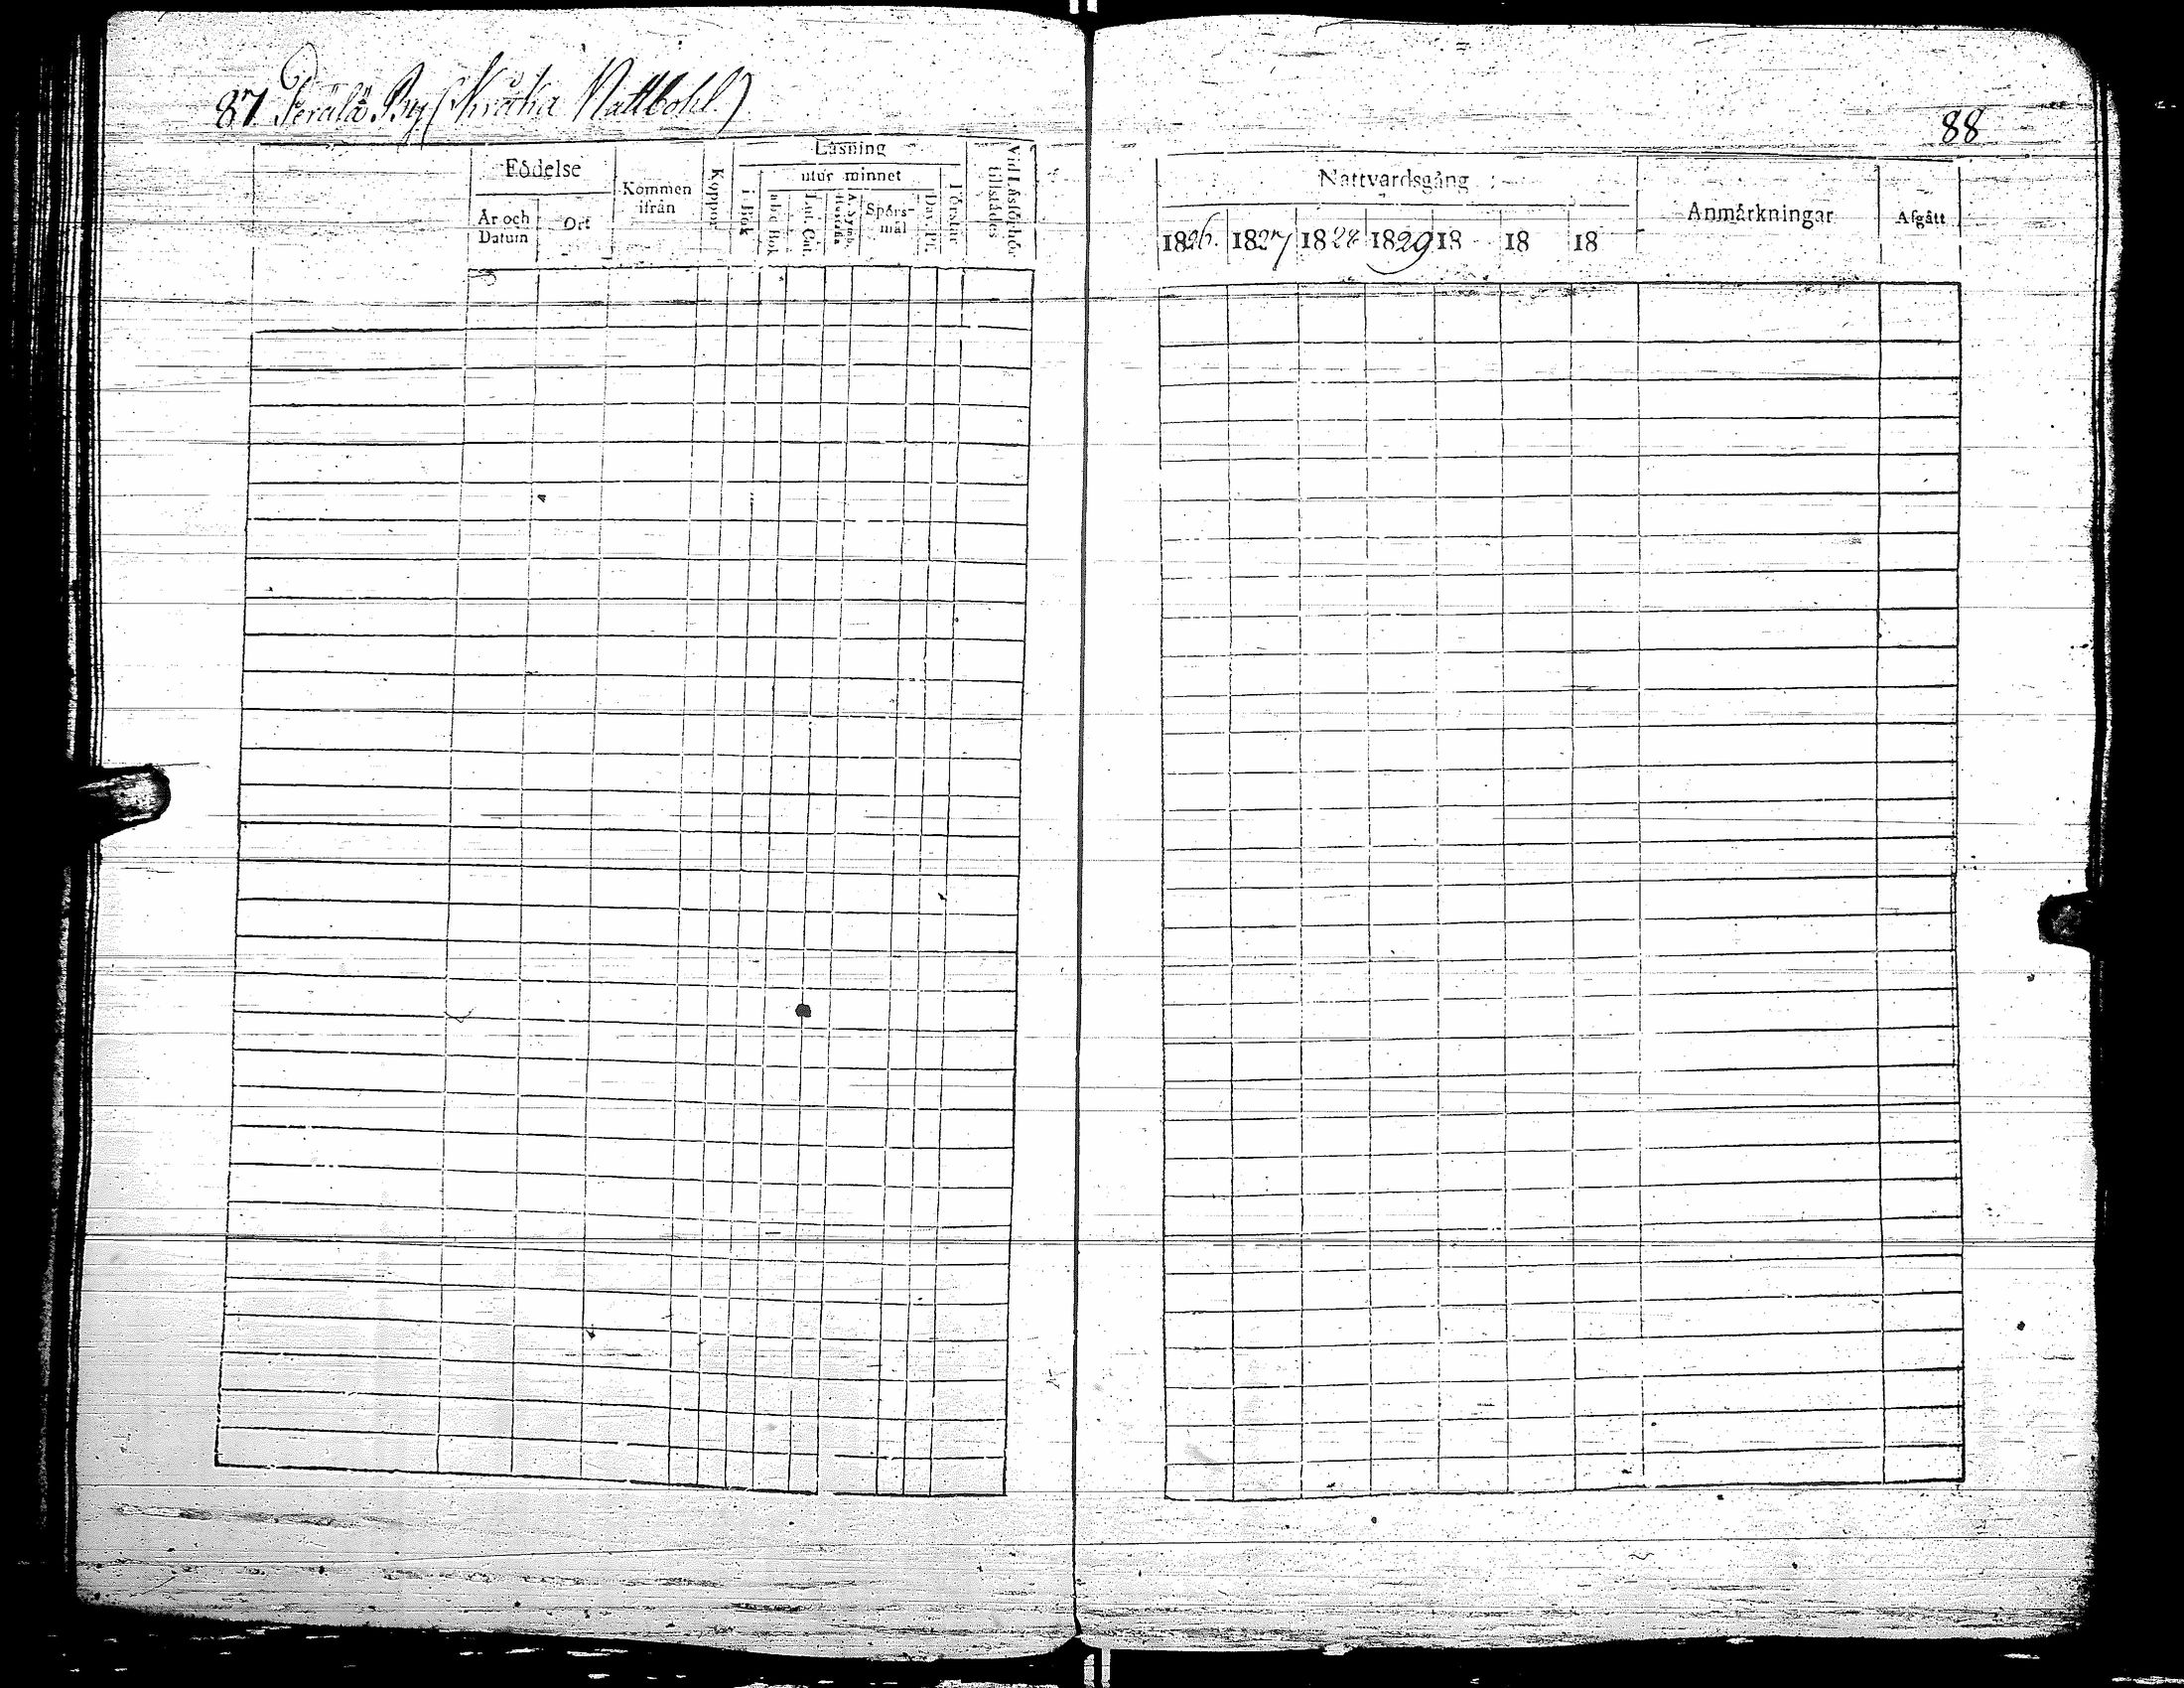 87. Perälä By (Kråka Nattbohl.)
Födelse
År och Datum
Ort
Kommen ifrån
Koppor
Läsning
i Bok
utur minnet
Abc Bok
Lut. Cat.
A. Symb.
Spörsmål
Dav. Ps.
Förstår
Vid Läsförhör tillstådes
88
Nattvardsgång
1826. 1827 1828 1829 18 18 18
Anmärkningar
Afgått